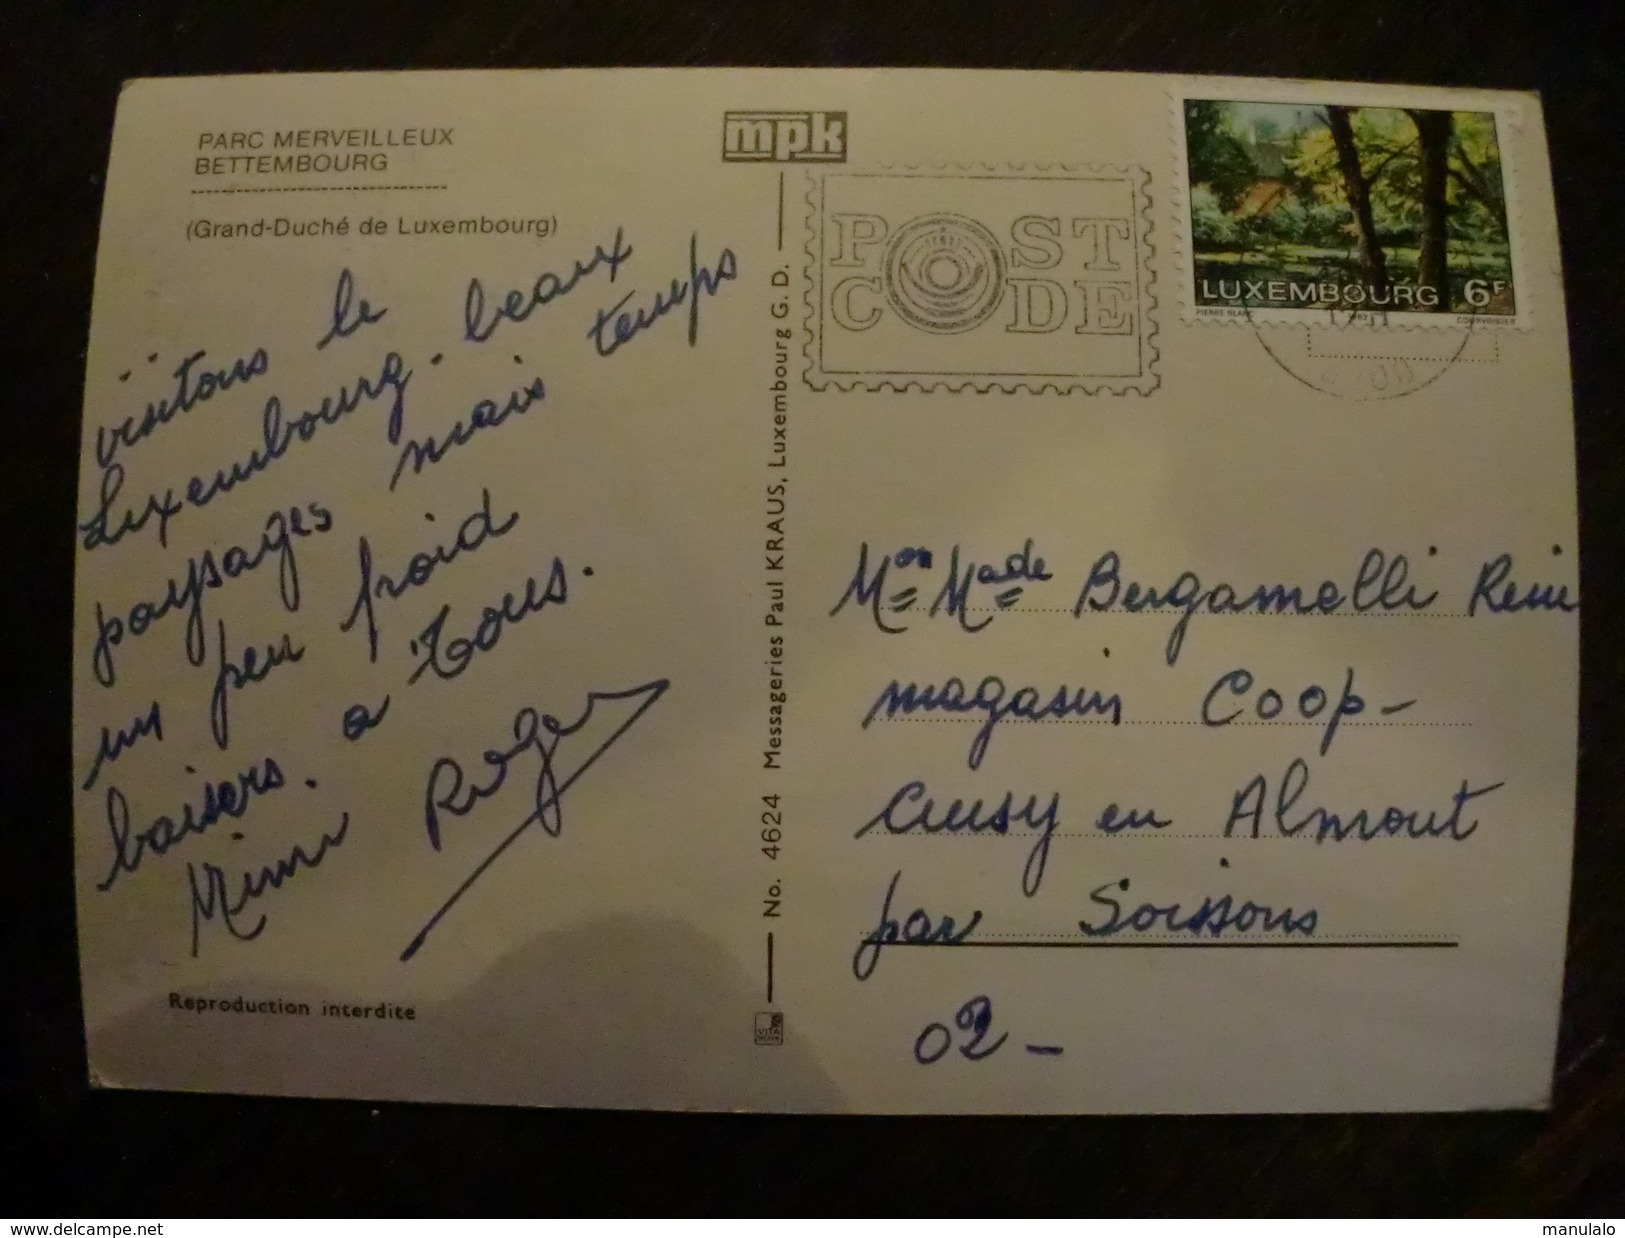 PARC MERVEILLEUX
BETTEMBOURG
(Grand-Duché de Luxembourg)
visitons le
Luxembourg. beaux
paysages mais temps
un peu froid
baisers. a Tous.
Mimi Roger
Reproduction interdite
mpk
No. 4624 Messageries Paul KRAUS, Luxembourg G. D.
POST
CODE
LUXEMBOURG 6F
PIERRE BLANC 1982 COURVOISIER
Mon Made Bergamelli Remi
magasin Coop-
Cuisy en Almont
par Soissons
02-
www.delcampe.net
manulalo